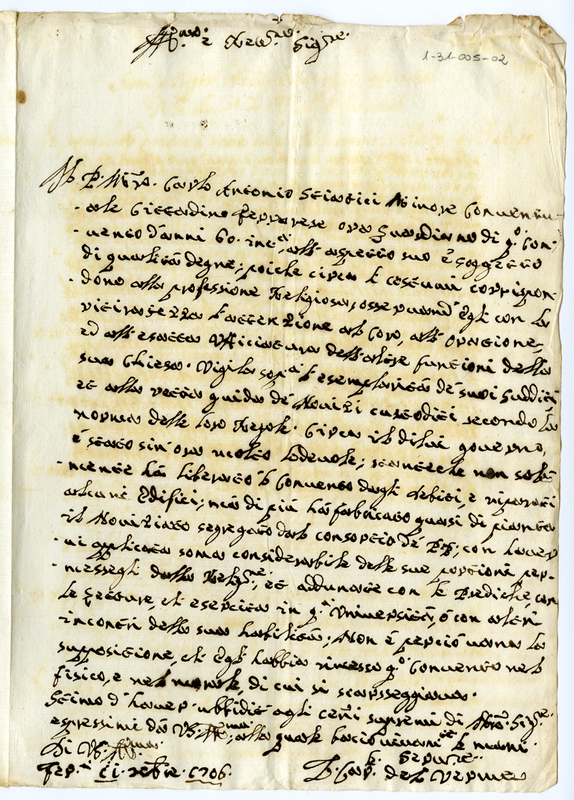 Ill.mo e Rev.mo Sig.re
1-31-005-02
Il P. M.ro Carlo Antonio Minore Conventu-
ale Cittadino Ferrarese ora Guardiano di q.o Con-
vento d'anni 60. inc.a, all'aspetto suo è soggetto
di qualità degne; poiche circa i costumi corrispon-
dono alla professione Religiosa, osservando egli con la
ritiratezza l'attenzione al Coro, all'Oratione,
ed all'esatta Ufficiatura dell'altre funtioni della
sua Chiesa. Vigila sop.a l'esemplarità de suoi sudditi
et alla retta guida de Novizi custoditi secondo la
norma delle loro Regole. Circa il di lui governo,
è stato sin'ora molto lodevole; mentre non sola-
mente hà liberato il Convento dagli debiti, e riparati
alcuni Edifici; mà di più hà fabricato quasi di pianta
il Noviziato segregato dal consortio de PP; con haver-
vi aplicata soma considerabile delle sue portioni per-
messegli dalla Relig.ne, et addunate con le Prediche, con
le letture, ch'esercita in q.a Università, ò con altri
incontri della sua habilità; Non è perciò vana la
suppositione, ch'egli habbia rimesso q.o Convento nel
fisico, e nel morale, di cui si scarsseggiava.
Stimo d'haver ubbidito agli cenni supremi di
espressimi da VS. Ill.ma, alla quale bacio le mani.
Di VS. Ill.ma
Fer.a li 1706.